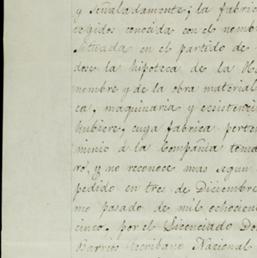 y Señaladamente; la fabric
tegidos conocida con el nomb
situada en el partido de
dose la hipoteca de la R
nombre y de la obra material
ca, maquinaria y existenci
hubiere, cuya fabrica perte
minio á la compañia
ró, y no reconoce mas
pedido en tres de Diciembre
mo pasado de mil ochocien
cinco, por el Licenciado Do
Barrios Escribano Nacional